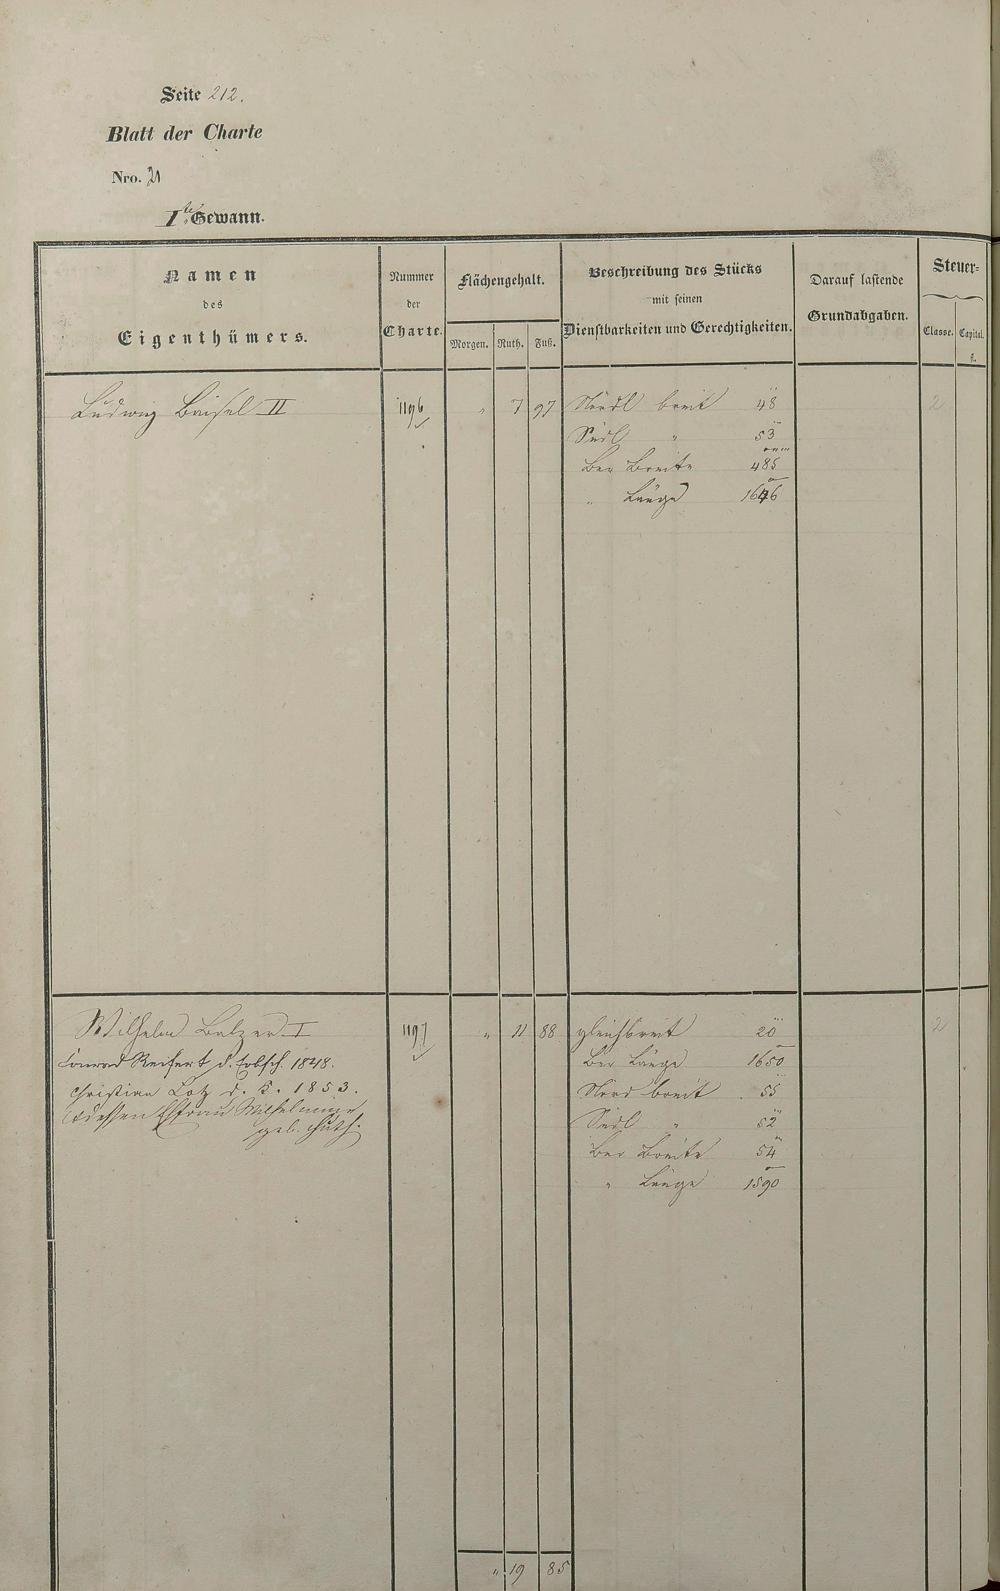 Seite 212.
Blatt der Charte
Nro. 21
I te Gewann.
Namen des Eigenthümers.
Nummer der Charte.
Flächengehalt.
Morgen. Ruth. Fuß.
Beschreibung des Stücks mit seinen Dienstbarkeiten und Gerechtigkeiten.
Darauf lastende Grundabgaben.
Steuer-
Classe. Capital. fl.
Ludwig Beisel II 1196 „ 7 97 Nördl breit 48 2
Südl „ 53
Ber Breite 485
„ Länge 1646
Wilhelm Balzer I 1197 „ 11 88 gleichbreit 20 2
Conrad Reifert d. Erbsch. 1848. Ber Länge 1650
Christian Lotz d. K. 1853. Nord breit 55
& dessen Ehfrau Wilhelmine Südl „ 52
geb. Huth. Ber Breite 54
„ Länge 1590
„ 19 85